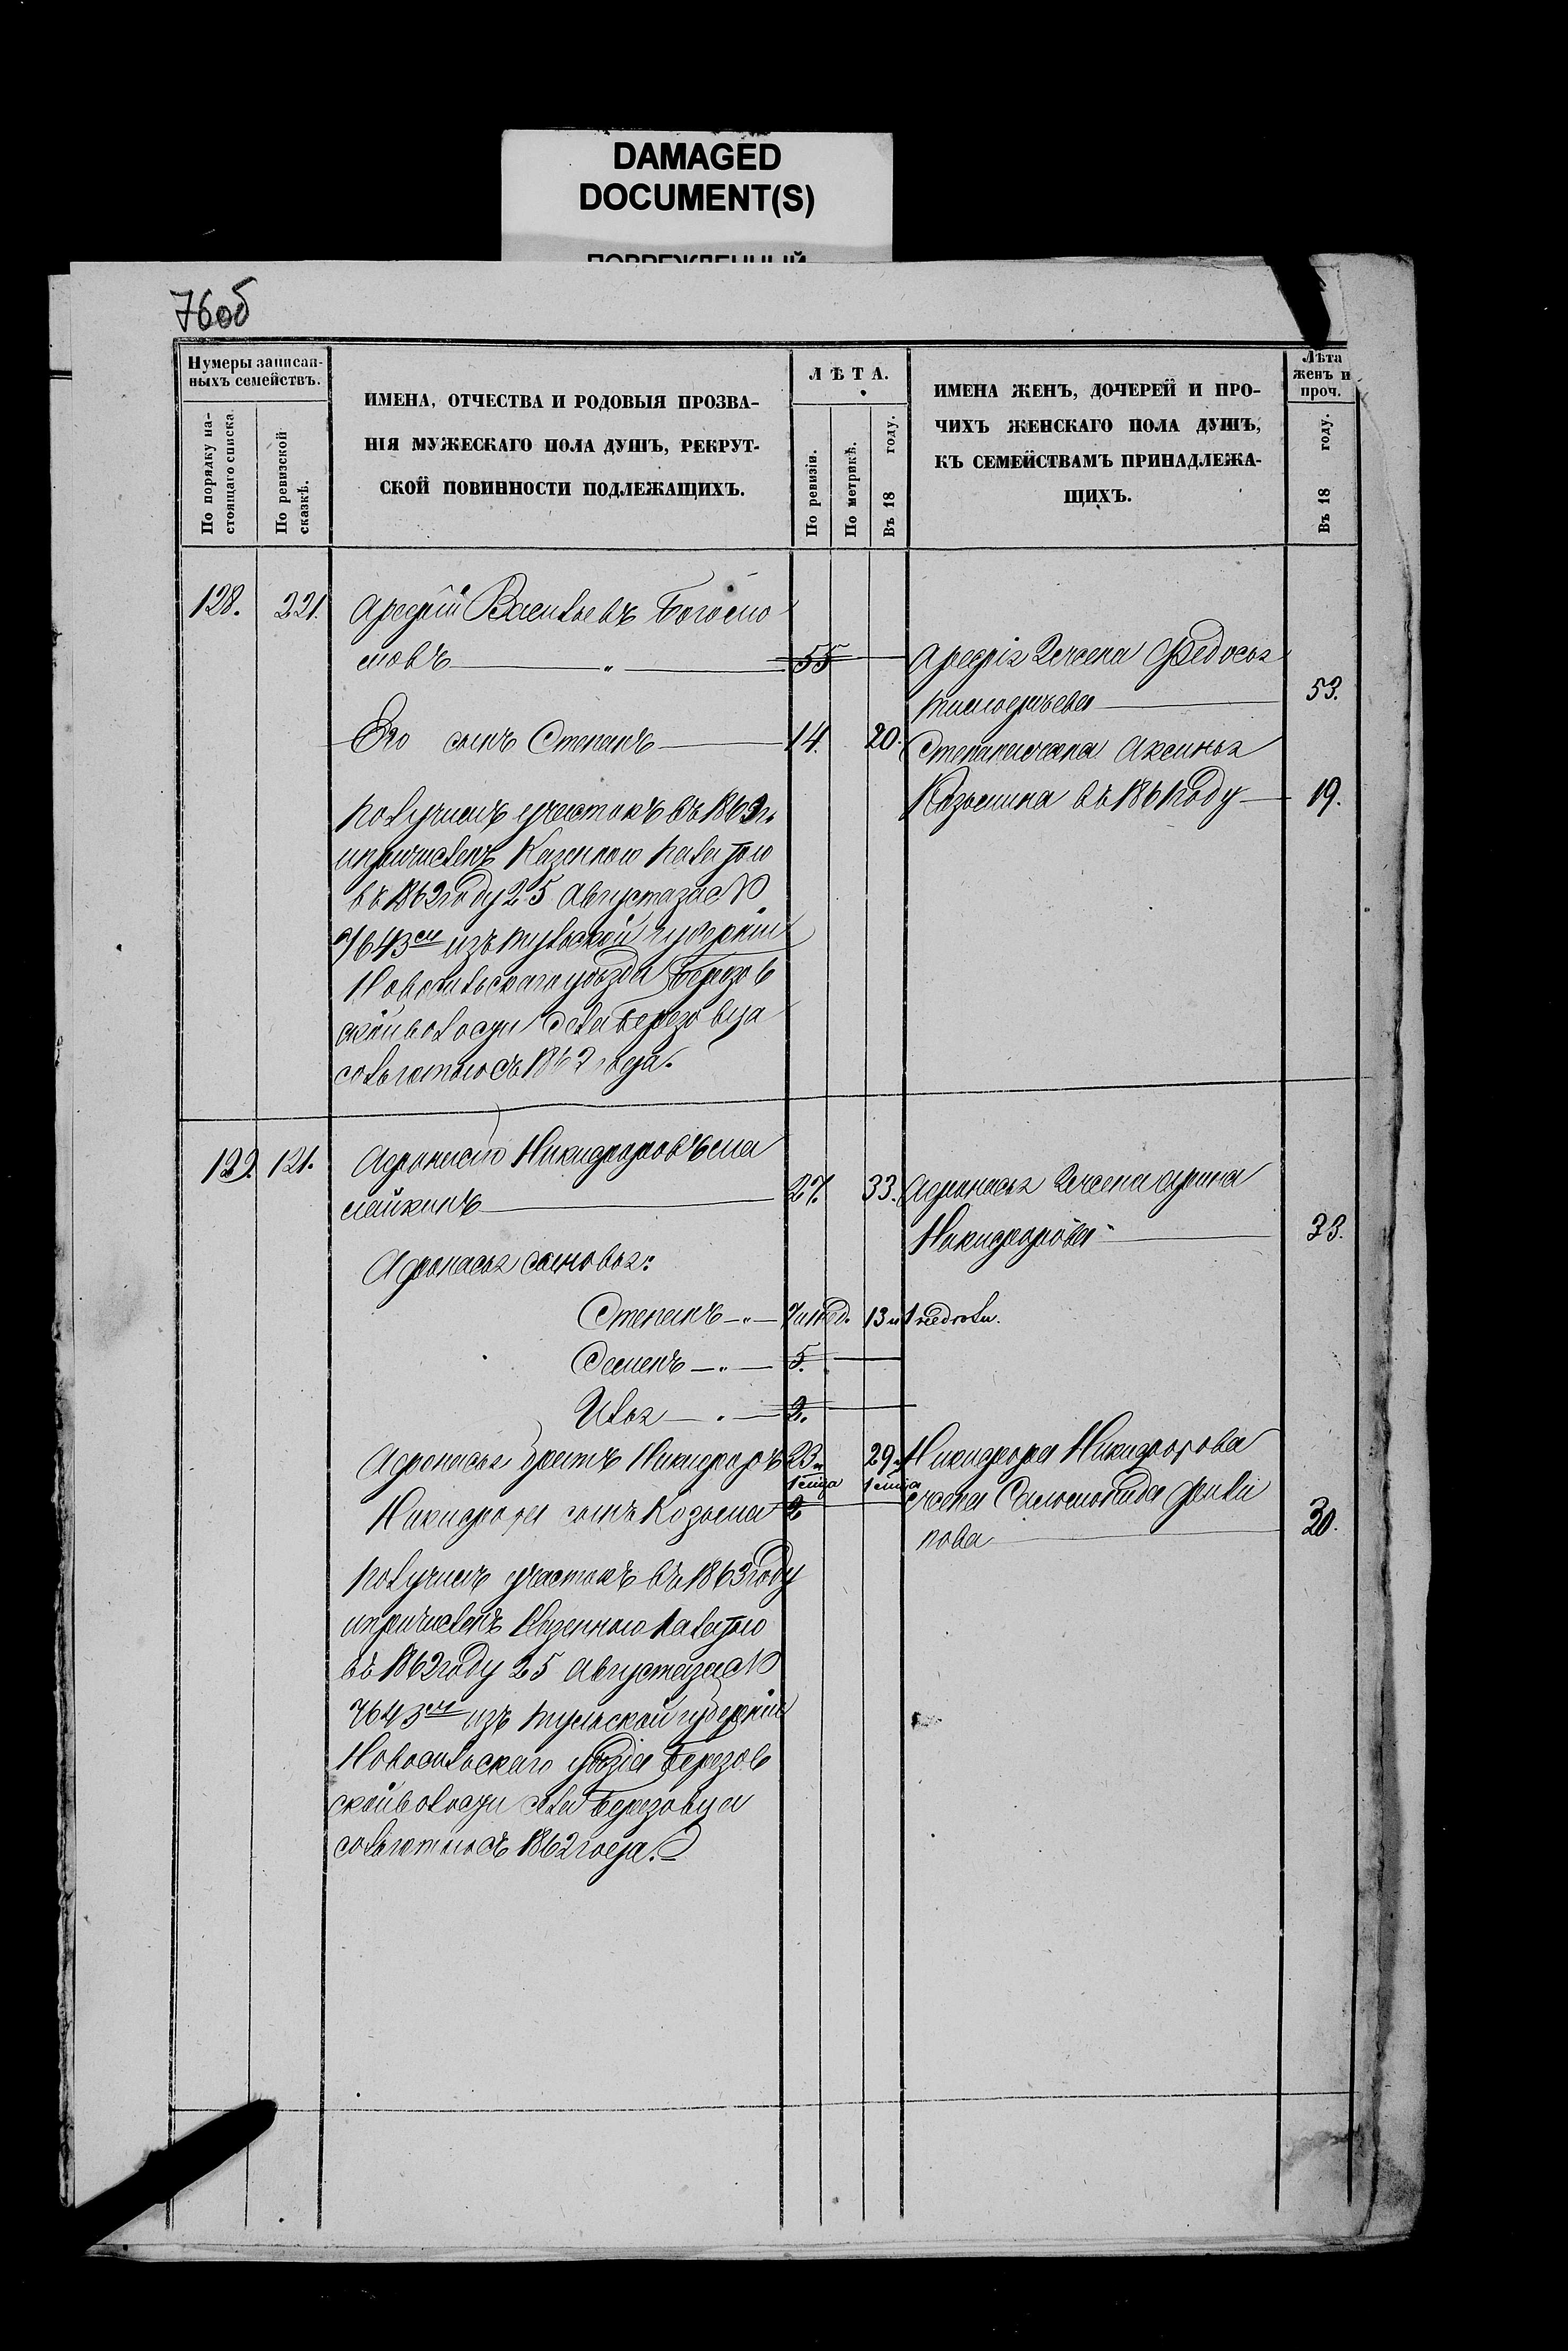 DAMAGED
DOCUMENT(S)
ПОВРЕЖДЕННЫЙ
76об
Нумеры записан-
ныхъ семействъ.
По порядку на-
стоящаго списка.
По ревизской
сказкѣ.
ИМЕНА, ОТЧЕСТВА И РОДОВЫЯ ПРОЗВА-
НІЯ МУЖЕСКАГО ПОЛА ДУШЪ, РЕКРУТ-
СКОЙ ПОВИННОСТИ ПОДЛЕЖАЩИХЪ.
ЛѢТА.
По ревизіи.
По метрикѣ.
Въ 18 году.
ИМЕНА ЖЕНЪ, ДОЧЕРЕЙ И ПРО-
ЧИХЪ ЖЕНСКАГО ПОЛА ДУШЪ,
КЪ СЕМЕЙСТВАМЪ ПРИНАДЛЕЖА-
ЩИХЪ.
Лѣта
женъ и
проч.
Въ 18 году.
128. 221. Арефій Васильевъ
мовъ 55
Арефія жена Федосья
Тимофеева 53.
Его сынъ Степанъ 14. 20.
Степана жена Аксинья
Козьмина въ 1861 году 19.
получилъ участокъ въ 1863 г.
и причисленъ Казенною палатою
въ 1862 году 25 Августа за №
7643ем изъ Тульской губерніи
Новосильского уѣзда Березов
ской волости села Березовца
со льготою съ 1862 года.
129. 121. Афонасій Никифоровъ
27. 33. Афонасья жена Арина
Никифорова 33.
Афонасья сыновья:
Степанъ 7 и 1 нед. 13 и 1 недоли.
Семенъ 5.
Илья 2.
Афонасья братъ Никифоръ 23 и 1 мца 29 и 1 мца
Никифора Никифорова
жена Соломонида Фили
пова 30.
Никифора сынъ Козьма 2
получилъ участокъ въ 1863 году
и причисленъ Казенною палатою
въ 1862 году 25 Августа за №
7643ем изъ Тульской губерніи
Новосильскаго уѣзда Березов
ской волости села Березовца
со льготою съ 1862 года.